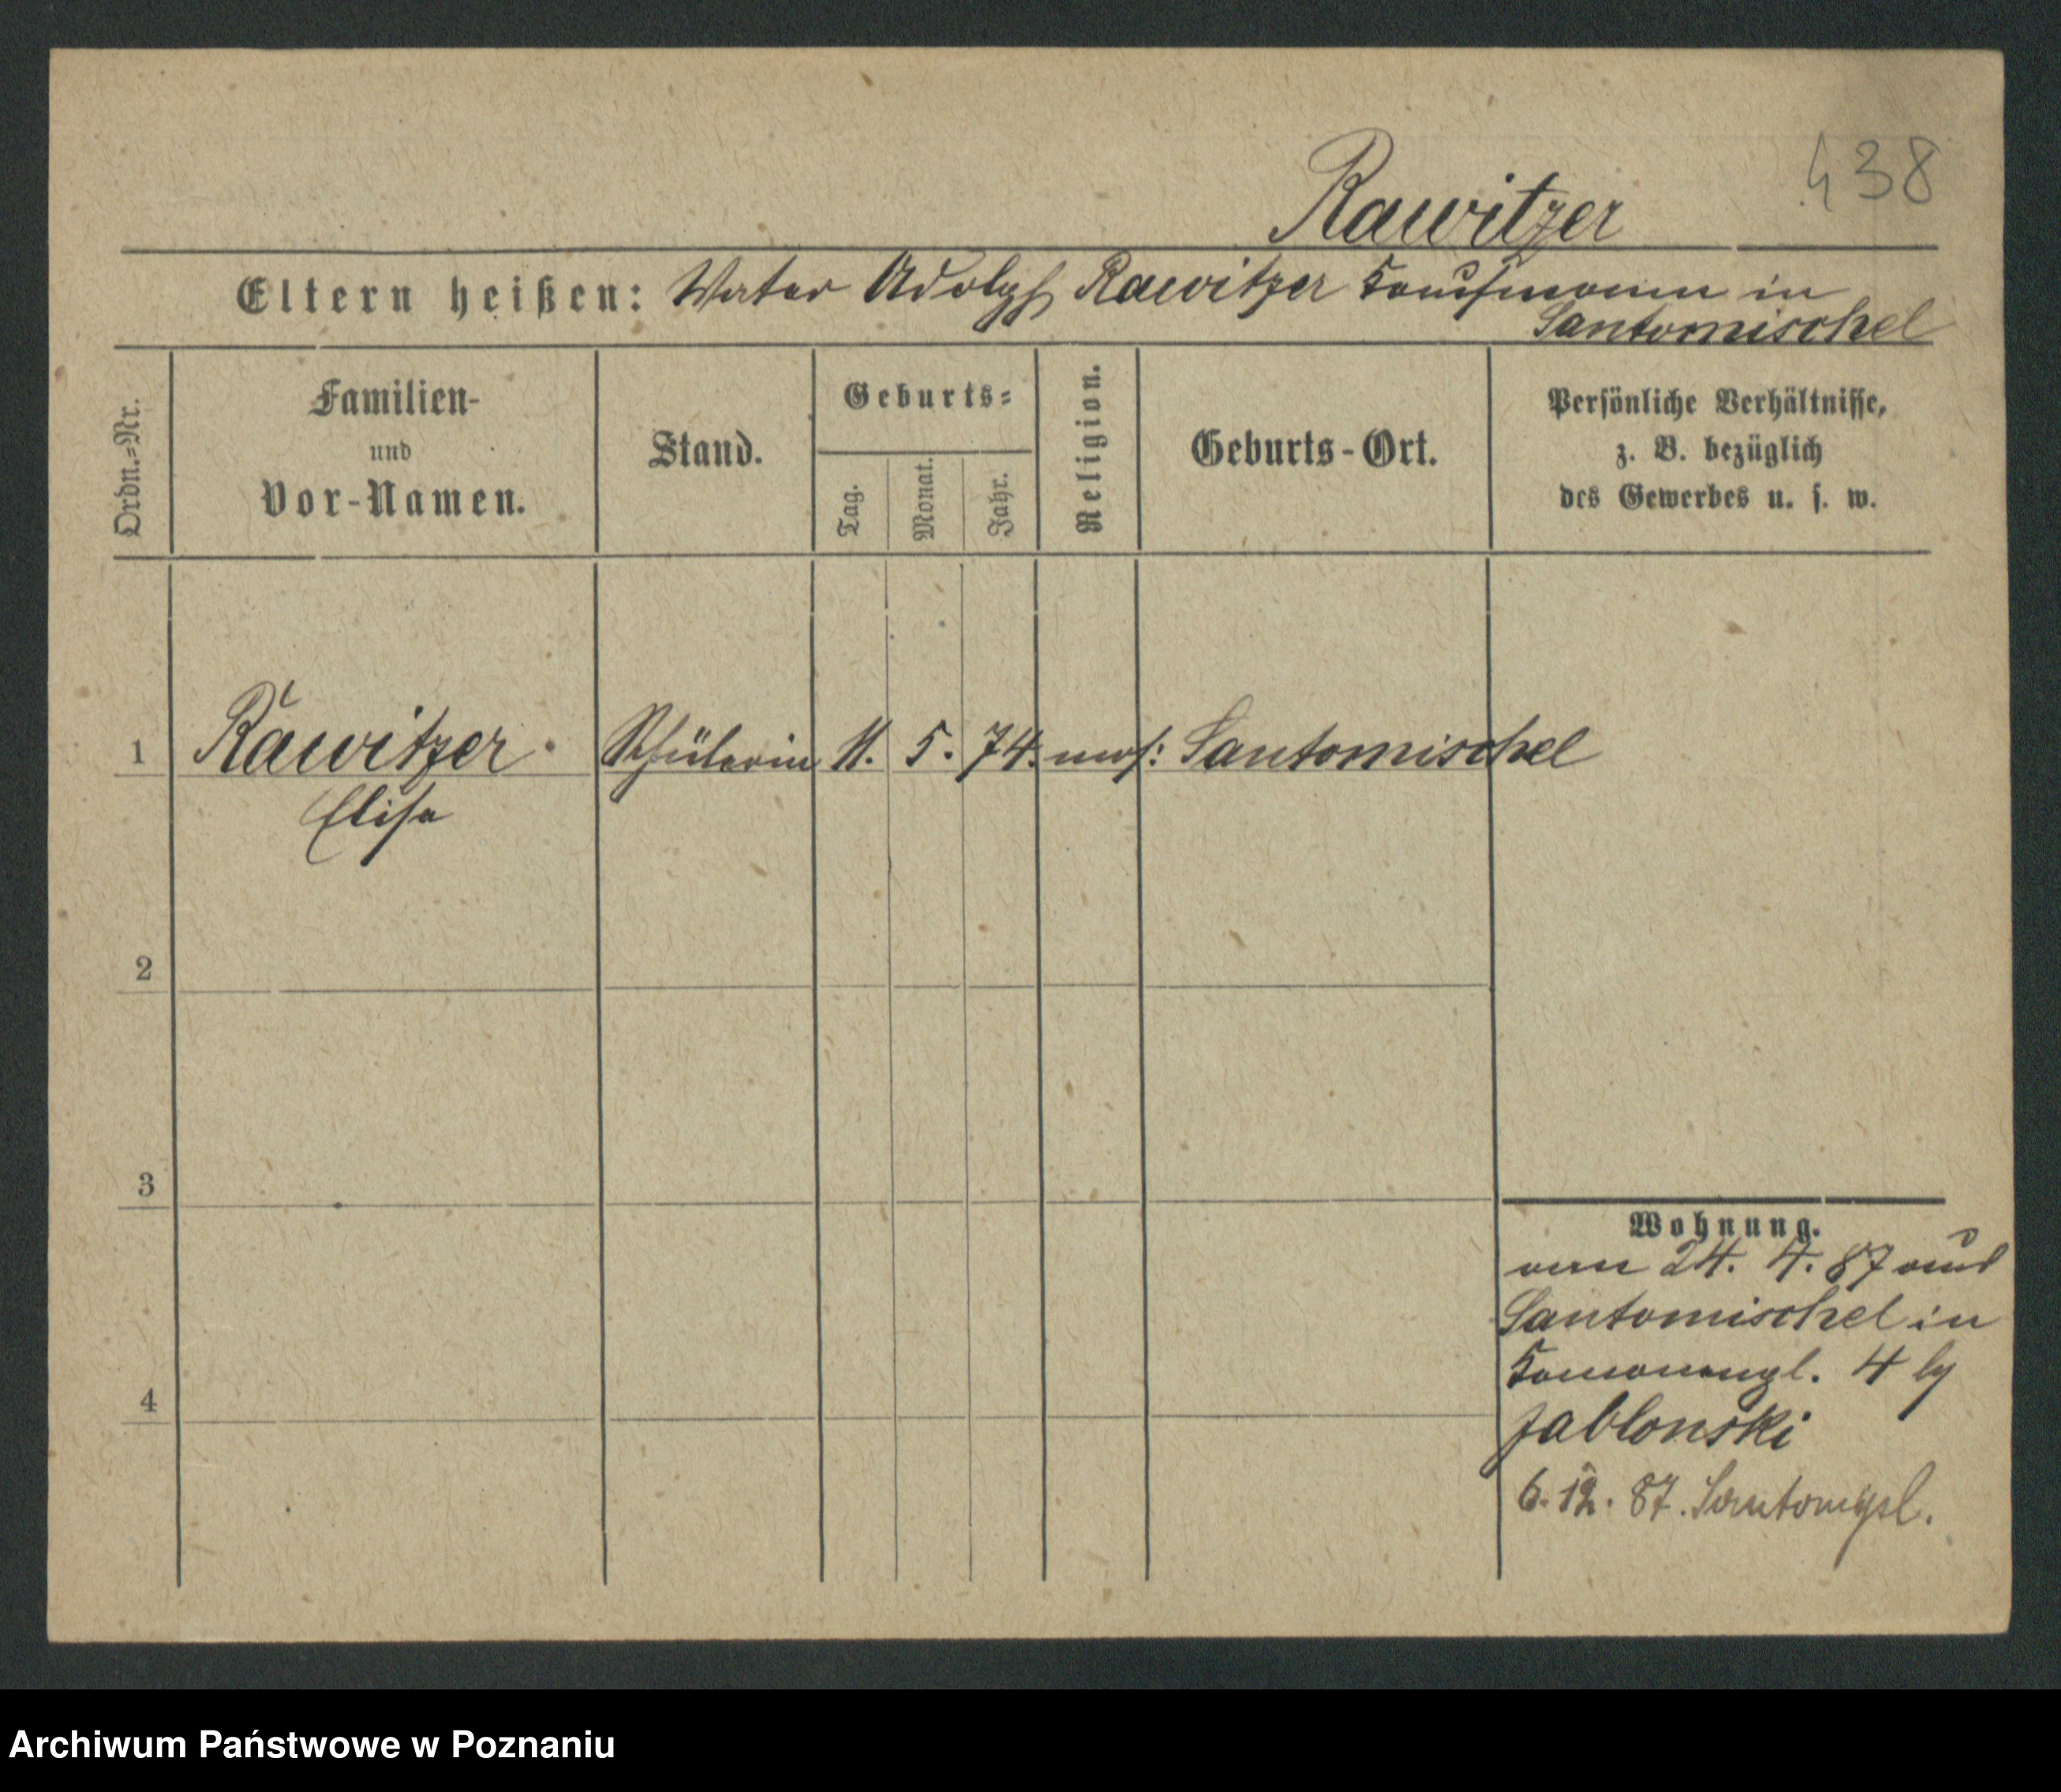 438
Rawitzer
Eltern heißen: Vater Adolph Rawitzer Kaufmann in
Santomischel
Ordn.=Nr.
Familien-
und
Vor-Namen.
Stand.
Geburts=
Tag.
Monat.
Jahr.
Religion.
Geburts-Ort.
Persönliche Verhältnisse,
z. B. bezüglich
des Gewerbes u. s. w.
1 Rawitzer Schülerin 11. 5. 74. mos: Santomischel
Elise
2
3
4
Wohnung.
24. 4. 87 aus
Santomischel in
4
Jablonski
6. 12. 87. Santomysl.
Archiwum Państwowe w Poznaniu